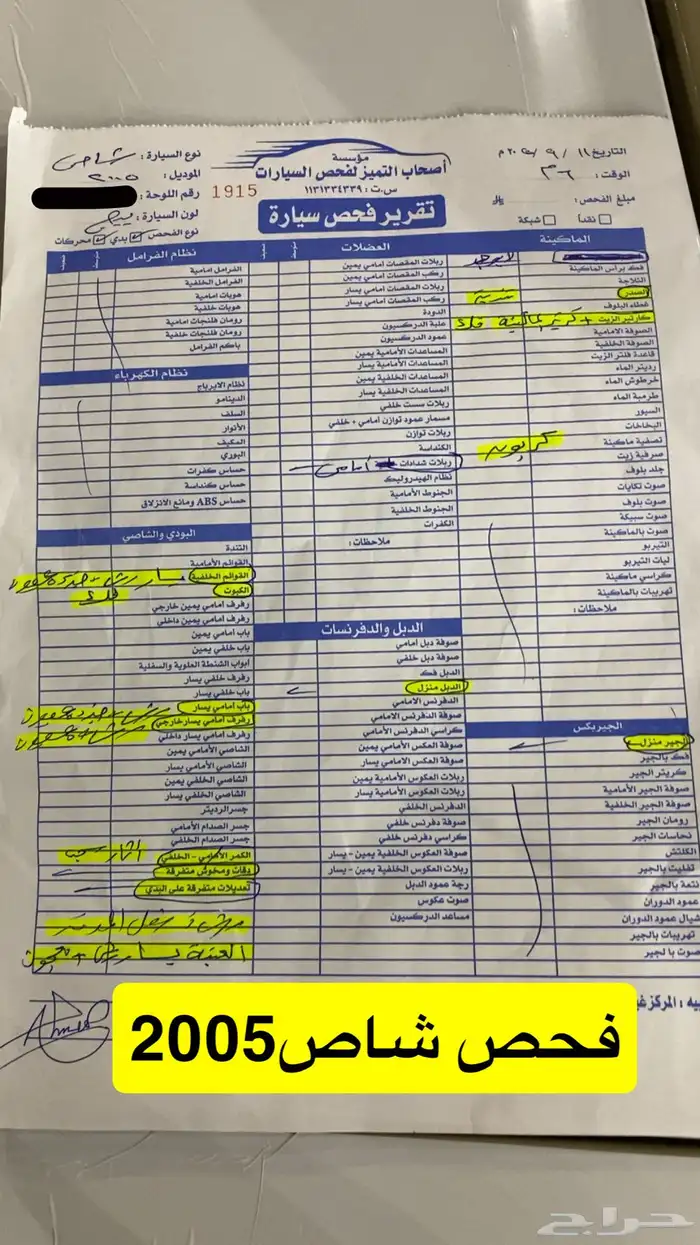 مؤسسة
أصحاب التميز لفحص السيارات
س.ت : ١١٣١٣٣٤٣٣٩
تقرير فحص سيارة
1915
التاريخ ١١ / ٩ / ٢٠٢٥ م
الوقت : ٦ م
مبلغ الفحص :
نقداً
شبكة
نوع السيارة : شاص
الموديل : ٢٠٠٥
رقم اللوحة :
لون السيارة :
نوع الفحص بدي محركات
الماكينة
لا يوجد
فك براس الماكينة
الثلاجة
الصدر
غطاء البلوف
كارتير الزيت + كرتير الماكينة فك
الصوفة الامامية
الصوفة الخلفية
قاعدة فلتر الزيت
رديتر الماء
خرطوش الماء
طرمبة الماء
السيور
البخاخات
تصفية ماكينة
صرفية زيت
جلد بلوف
صوت تكايات
صوت بلوف
صوت سبيكة
صوت بالماكينة
التيربو
ليات التيربو
كراسي ماكينة
تهريبات بالماكينة
ملاحظات :
الجيربكس
الجير منزل
فك بالجير
كريتر الجير
صوفة الجير الأمامية
صوفة الجير الخلفية
رومان الجير
نحاسات الجير
الكلتش
تفليت بالجير
نتعة بالجير
عمود الدوران
شيال عمود الدوران
تهريبات بالجير
صوت با لجير
العضلات
ربلات المقصات امامي يمين
ركب المقصات امامي يمين
ربلات المقصات امامي يسار
ركب المقصات امامي يسار
الدودة
علبة الدركسيون
عمود الدركسيون
المساعدات الأمامية يمين
المساعدات الأمامية يسار
المساعدات الخلفية يمين
المساعدات الخلفية يسار
ربلات سست خلفي
مسمار عمود توازن أمامي + خلفي
ربلات توازن
الكنداسة
ربلات شدادات أمامي
نظام الهيدروليك
الجنوط الأمامية
الجنوط الخلفية
الكفرات
ملاحظات :
الدبل والدفرنسات
صوفة دبل أمامي
صوفة دبل خلفي
الدبل فك
الدبل منزل
الدفرنس الامامي
صوفة الدفرنس الامامي
كراسي الدفرنس الأمامي
صوفة العكس الأمامي يمين
صوفة العكس الامامي يسار
ربلات العكوس الأمامية يمين
ربلات العكوس الأمامية يسار
الدفرنس الخلفي
صوفة دفرنس خلفي
كراسي دفرنس خلفي
صوفة العكوس الخلفية يمين - يسار
ربلات العكوس الخلفية يمين - يسار
رجة عمود الدبل
صوت عكوس
مساعد الدركسيون
نظام الفرامل
الفرامل امامية
الفرامل الخلفية
هوبات امامية
هوبات خلفية
رومان فلنجات امامية
رومان فلنجات خلفية
باكم الفرامل
نظام الكهرباء
نظام الايرباج
الدينامو
السلف
الأنوار
المكيف
البوري
حساس كفرات
حساس كنداسة
حساس ABS ومانع الانزلاق
البودي والشاصي
التندة
القوائم الأمامية
القوائم الخلفية
الكبوت فك
رفرف امامي يمين خارجي
رفرف امامي يمين داخلي
باب أمامي يمين
باب خلفي يمين
ابواب الشنطة العلوية والسفلية
رفرف خلفي يسار
باب خلفي يسار
باب أمامي يسار
رفرف امامي يسار خارجي
رفرف امامي يسار داخلي
الشاصي الأمامي يمين
الشاصي الأمامي يسار
الشاصي الخلفي يمين
الشاصي الخلفي يسار
جسر الرديتر
جسر الصدام الأمامي
جسر الصدام الخلفي
الكمر الأمامي - الخلفي
دقات ومخوش متفرقة
تعديلات متفرقة على البدي
Ahmed
فحص شاص2005
حراج